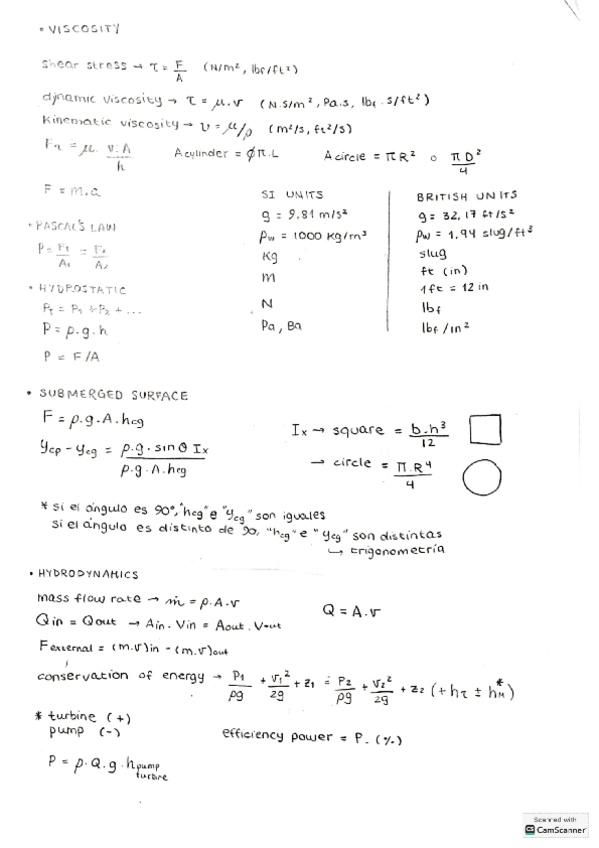 • VISCOSITY
shear stress → τ = F/A (N/m², lbf/ft²)
dynamic viscosity → τ = μ.v (N.s/m², Pa.s, lbf.s/ft²)
Kinematic viscosity → υ = μ/ρ (m²/s, ft²/s)
= μ. v.A/h A cylinder = ∅π.L A circle = πR² o πD²/4
F = m.a
SI UNITS
g = 9,81 m/s²
ρw = 1000 Kg/m³
Kg
m
N
Pa, Ba
BRITISH UNITS
g = 32,17 ft/s²
ρw = 1,94 slug/ft³
slug
ft (in)
1ft = 12 in
lbf
lbf/in²
• PASCAL'S LAW
P = F₁/A₁ = F₂/A₂
• HYDROSTATIC
Pt = P₁ + P₂ + ...
P = ρ.g.h
P = F/A
• SUBMERGED SURFACE
F = ρ.g.A.hcg
ycp - ycg = ρ.g.sinθ Ix / ρ.g.A.hcg
Ix → square = b.h³/12
→ circle = π.R⁴/4
* si el ángulo es 90°, "hcg" e "ycg" son iguales
si el ángulo es distinto de 90, "hcg" e "ycg" son distintas
↳ trigonometría
• HYDRODYNAMICS
mass flow rate → ṁ = ρ.A.v
Q = A.v
Qin = Qout → Ain.Vin = Aout.Vout
Fexternal = (m.v)in - (m.v)out
conservation of energy → P₁/ρg + v₁²/2g + z₁ = P₂/ρg + v₂²/2g + z₂ (+hτ ± hM*)
* turbine (+)
pump (-)
efficiency power = P. (%)
P = ρ.Q.g.h pump
turbine
Scanned with
CS CamScanner